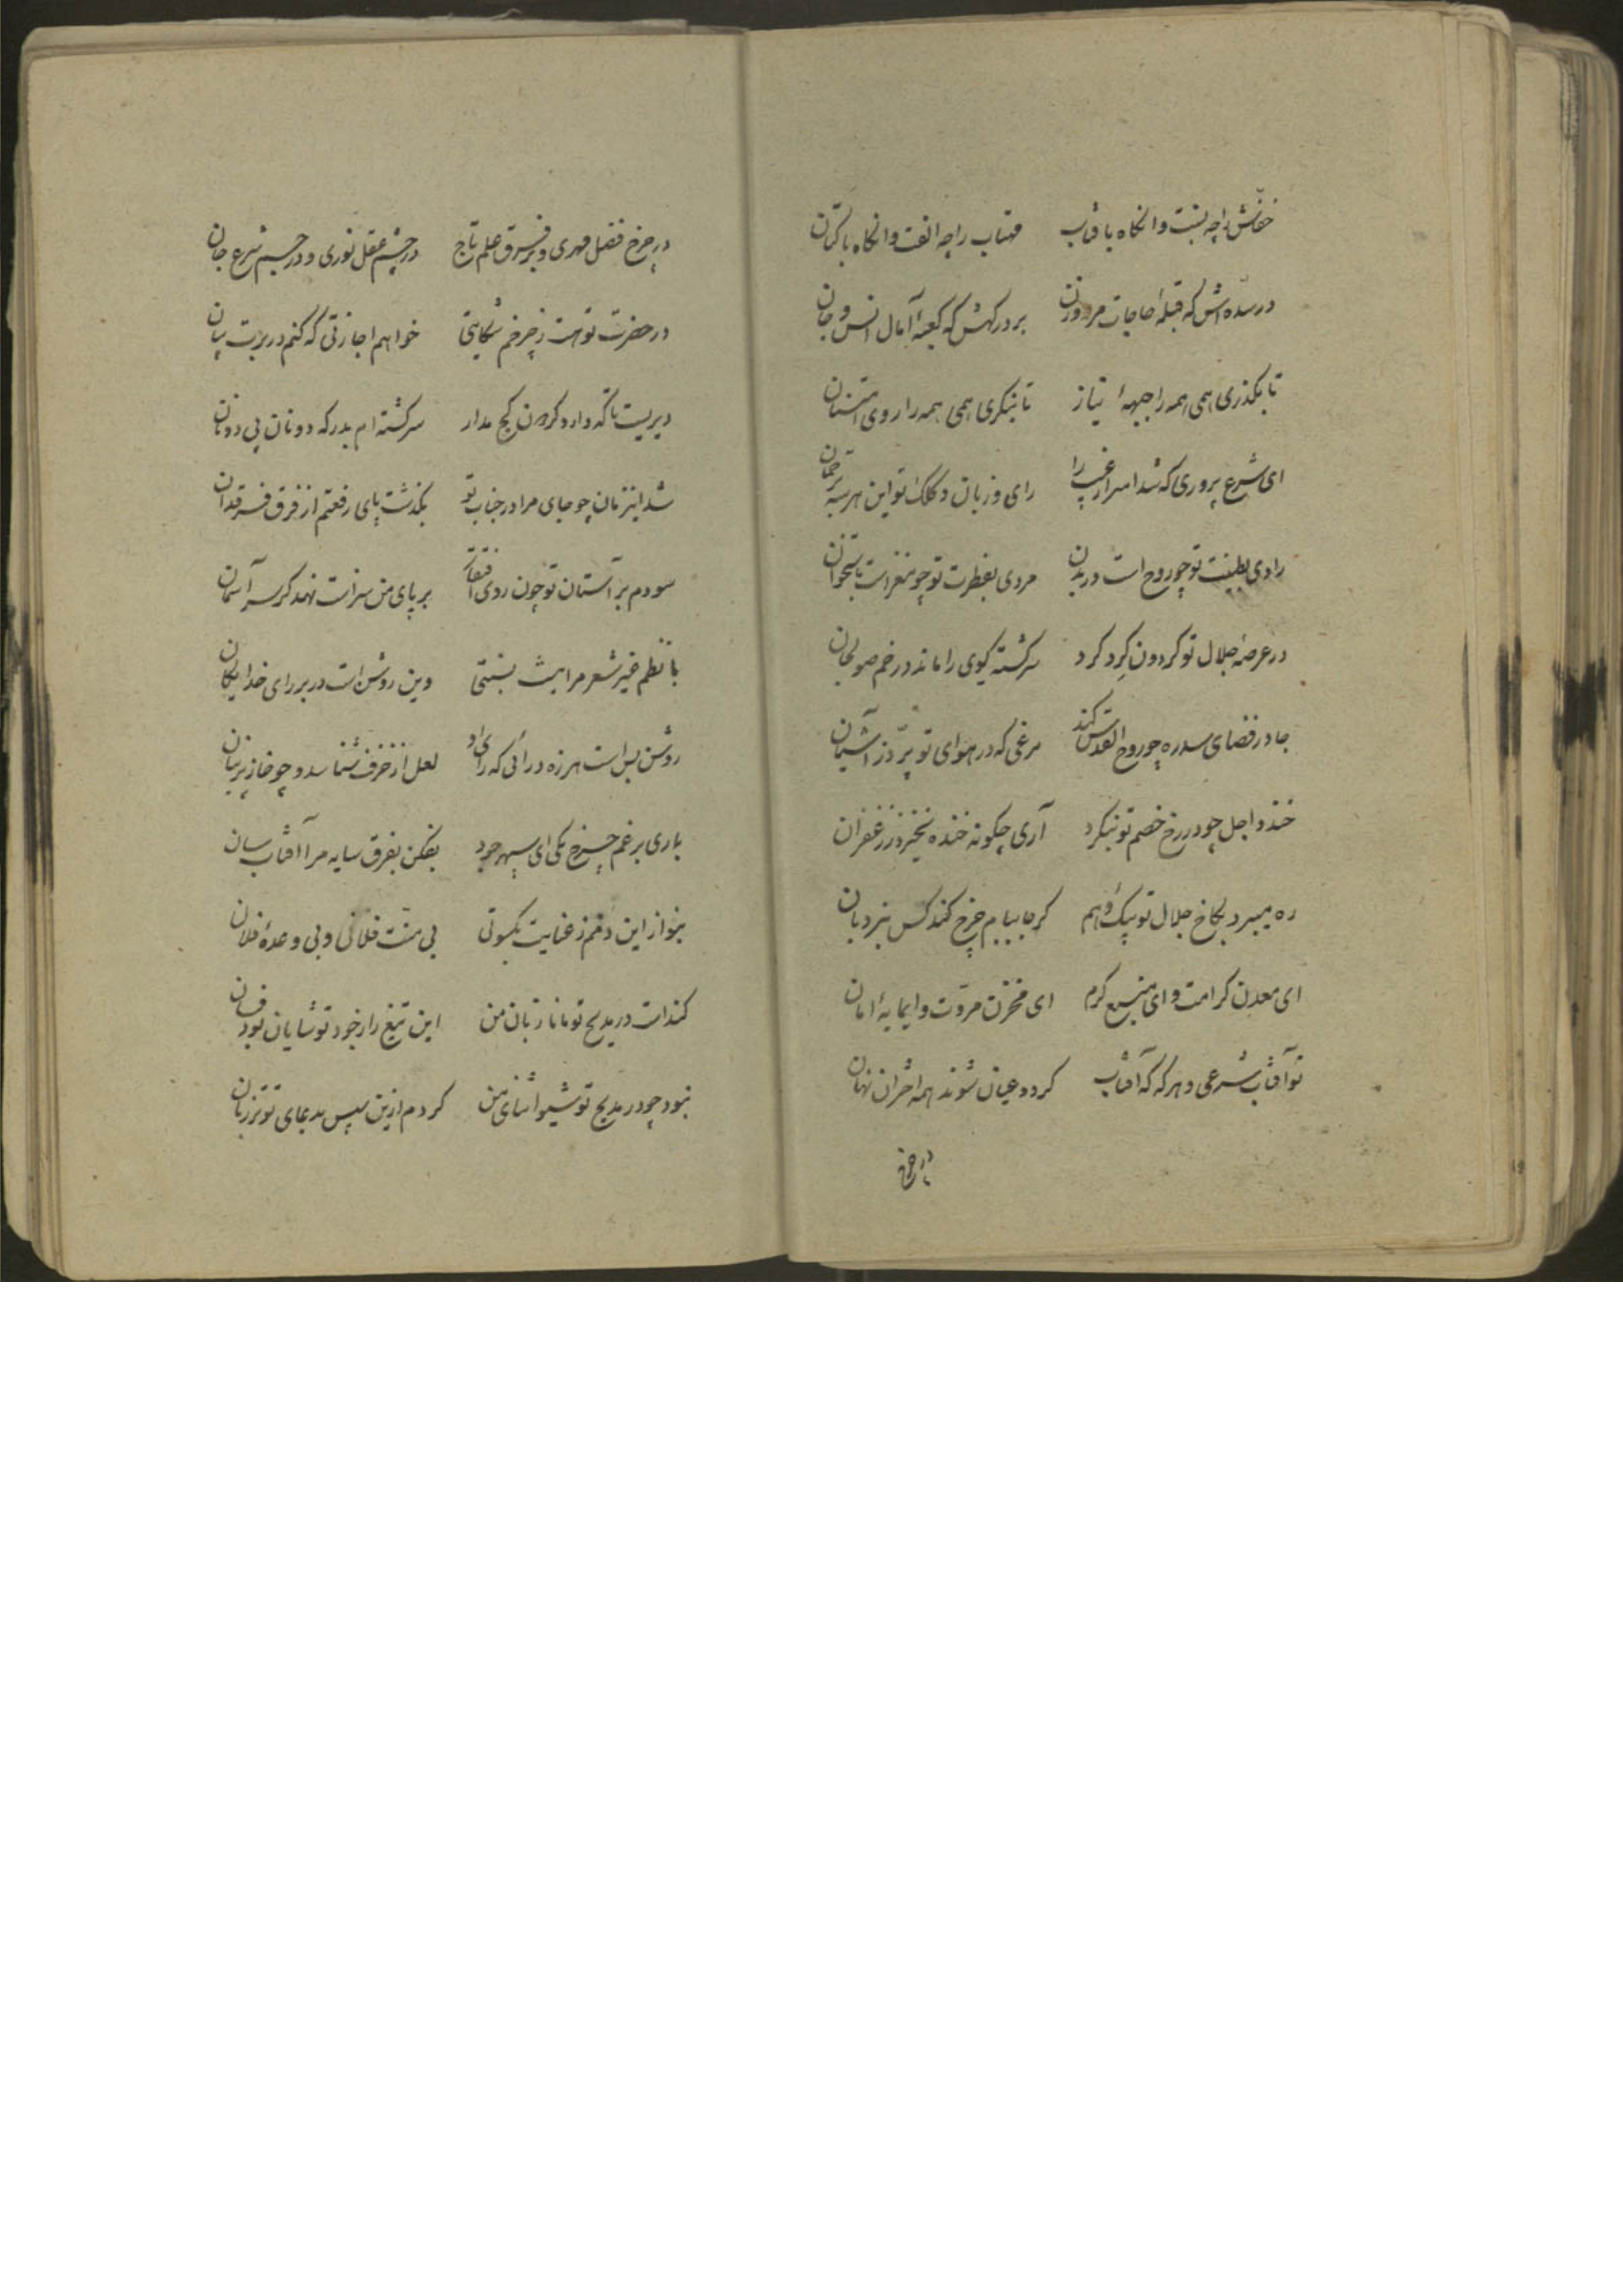 خفاش را چه نسبت وانگاه بافتاب مهتاب را چه الفت وانگاه باکتان
در سده اش که قبله حاجات مرد و زن بر درگهش که کعبهٔ آمال انس و جان
تا بگذری همی همه را جبههٔ نیاز تا بنگری همی همه را روی امتنان
ای شرع پروری که شد اسرار غیب را رای و زبان و کلک تو این هر سه ترجمان
رادی بطینت تو چو روح است در بدن مردی بفطرت تو چو مغز است باستخوان
در عرصهٔ جلال تو گردون گرد گرد سرگشته گوی را ماند در خم صولجان
جا در فضای سدره چو روح القدس کند مرغی که در هوای تو پرّد ز آشیان
خندد اجل چو در رخ خصم تو بنگرد آری چگونه خنده نخیزد ز زعفران
ره میبرد بکاخ جلال تو پیک وهم گر جا ببام چرخ کند کس بنردبان
ای معدن کرامت و ای منبع کرم ای مخزن مروّت و ایمایهٔ امان
تو آفتاب شرعی و هر گه که آفتاب گردد عیان شوند همه اختران نهان
در چرخ
در چرخ فضل مهری و بر فرق علم تاج در چشم عقل نوری و در جسم شرع جان
در حضرت توهست ز چرخم شکایتی خواهم اجازتی که کنم در برت بیان
دیریست تا که دارد گردون کج مدار سرگشته ام بدرگه دونان پی دو نان
شد اینزمان چو جای مرا در جناب تو بگذشت پای رفعتم از فرق فرقدان
سودم بر آستان تو چون روی افتقار بر پای من سزاست نهد گر سر آسمان
با نظم غیر شعر مرا نیست نسبتی وین روشن است در بر رای خدایگان
روشن بس است هرزه درائی که رای او لعل از خزف شناسد و چوخا ز پرنیان
باری برغم چرخ یکی ای سپهر جود بفکن بفرق سایه مرا آفتاب سان
بنواز این دمم ز عنایت بکسوتی بی منّت فلانی و بی وعدهٔ فلان
کند است در مدیح تو مانا زبان من این تیغ را ز جود تو شایان بود فسان
نبود چو در مدیح تو شیوا ثنای من کردم ازین سپس بدعای تو تر زبان